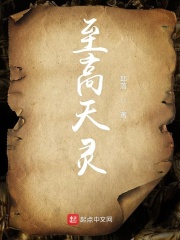 至高天灵
著
起点中文网